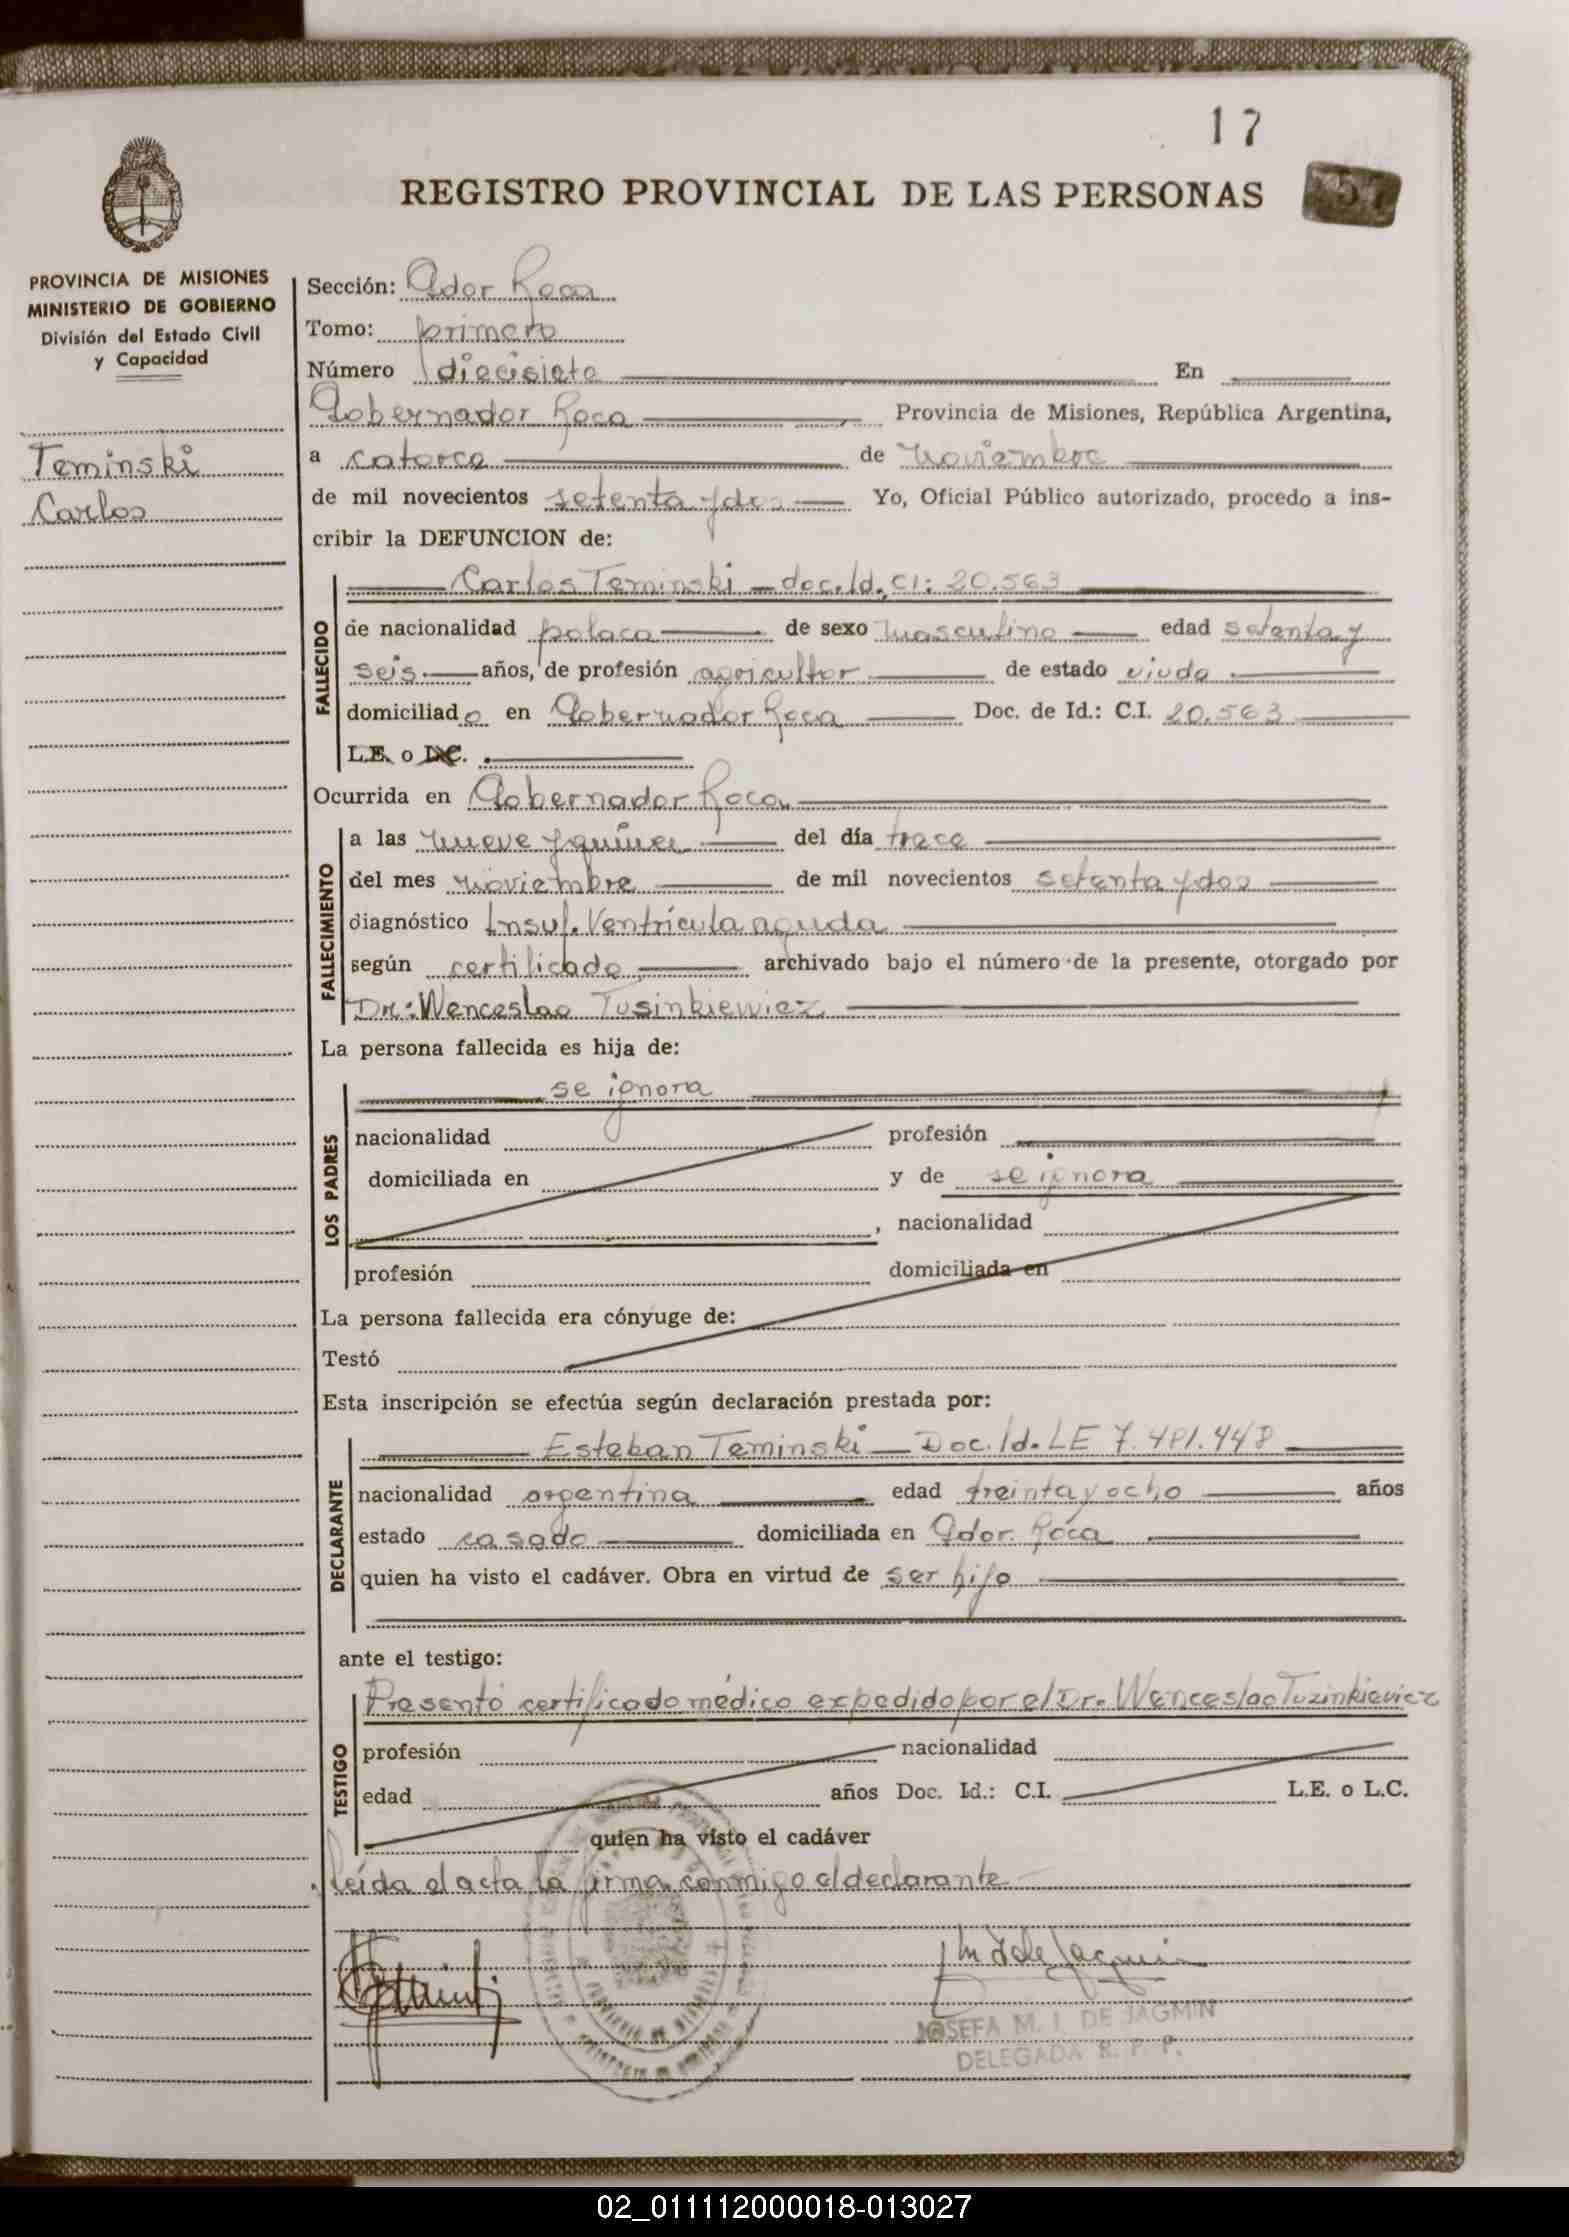 17
REGISTRO PROVINCIAL DE LAS PERSONAS
57
PROVINCIA DE MISIONES
MINISTERIO DE GOBIERNO
División del Estado Civil
y Capacidad
Teminski
Carlos
Sección: Gdor Roca
Tomo: primero
Número diecisiete En
Gobernador Roca Provincia de Misiones, República Argentina,
a catorce de noviembre
de mil novecientos setenta y dos Yo, Oficial Público autorizado, procedo a ins-
cribir la DEFUNCION de:
FALLECIDO
Carlos Teminski - doc. Id. CI: 20.563
de nacionalidad polaca de sexo masculino edad setenta y
seis años, de profesión agricultor de estado viudo
domiciliado en Gobernador Roca Doc. de Id.: C.I. 20.563
L.E. o L.C.
Ocurrida en Gobernador Roca
FALLECIMIENTO
a las nueve y quince del día trece
del mes noviembre de mil novecientos setenta y dos
diagnóstico Insuf. Ventrícula aguda
según certificado archivado bajo el número de la presente, otorgado por
Dr: Wenceslao Tusinkiewicz
La persona fallecida es hija de:
LOS PADRES
se ignora
nacionalidad profesión
domiciliada en y de se ignora
, nacionalidad
profesión domiciliada en
La persona fallecida era cónyuge de:
Testó
Esta inscripción se efectúa según declaración prestada por:
DECLARANTE
Esteban Teminski - Doc. Id. LE 7.481.448
nacionalidad argentina edad treinta y ocho años
estado casado domiciliada en Gdor. Roca
quien ha visto el cadáver. Obra en virtud de ser hijo
ante el testigo:
TESTIGO
Presentó certificado médico expedido por el Dr. Wenceslao Tuzinkievicz
profesión nacionalidad
edad años Doc. Id.: C.I. L.E. o L.C.
quien ha visto el cadáver
Leída el acta la firma conmigo el declarante
M I de Jagmin
JOSEFA M. I. DE JAGMIN
DELEGADA R. P. P.
02_011112000018-013027